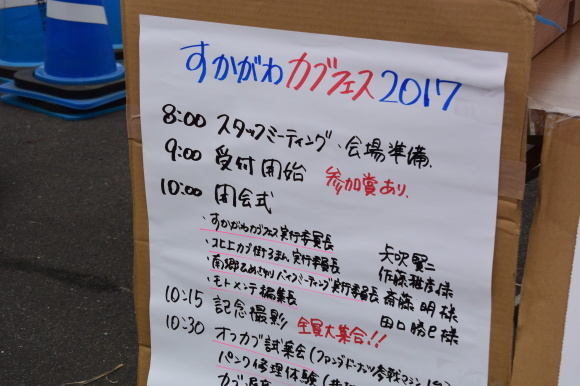 すかがわカブフェス2017
8:00 スタッフミーティング、会場準備、
9:00 受付開始 参加賞あり、
10:00 開会式
・すかがわカブフェス実行委員長 矢吹賢二
・北上カブ街ろまん実行委員長 佐藤雅彦様
・南郷ひめさゆりバイクミーティング実行委員長 斎藤 明 様
・モトメンテ編集長 田口勝己様
10:15 記念撮影 全員大集合!!
10:30 オフカブ試乗会(ファンダドーナツ参戦マシン
パンク修理体験(